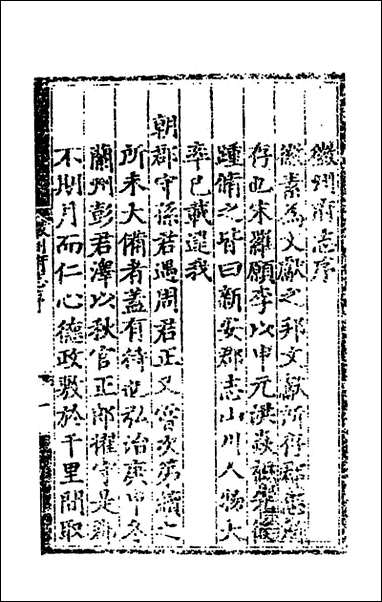 徽州府志序
徽素為文獻之邦文獻所存郡志
存也宋羅願李以申元洪焱祖先後
踵脩之皆曰新安郡志山川人物大
率已載逮我
朝郡守孫君遇周君正又嘗次第續之
所未大備者蓋有待也弘治庚申冬
蘭州彭君澤以秋官正郎擢守是郡
不期月而仁心德政敷於千里間取
徽州府志序
一